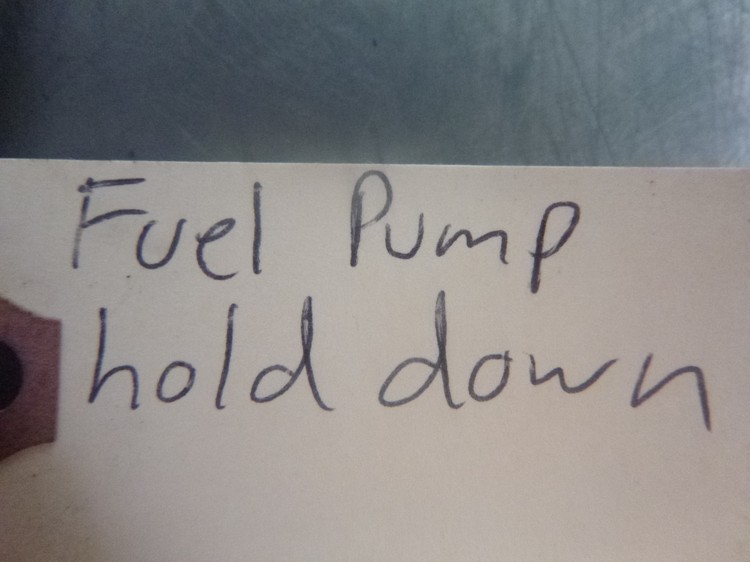 Fuel Pump
hold down